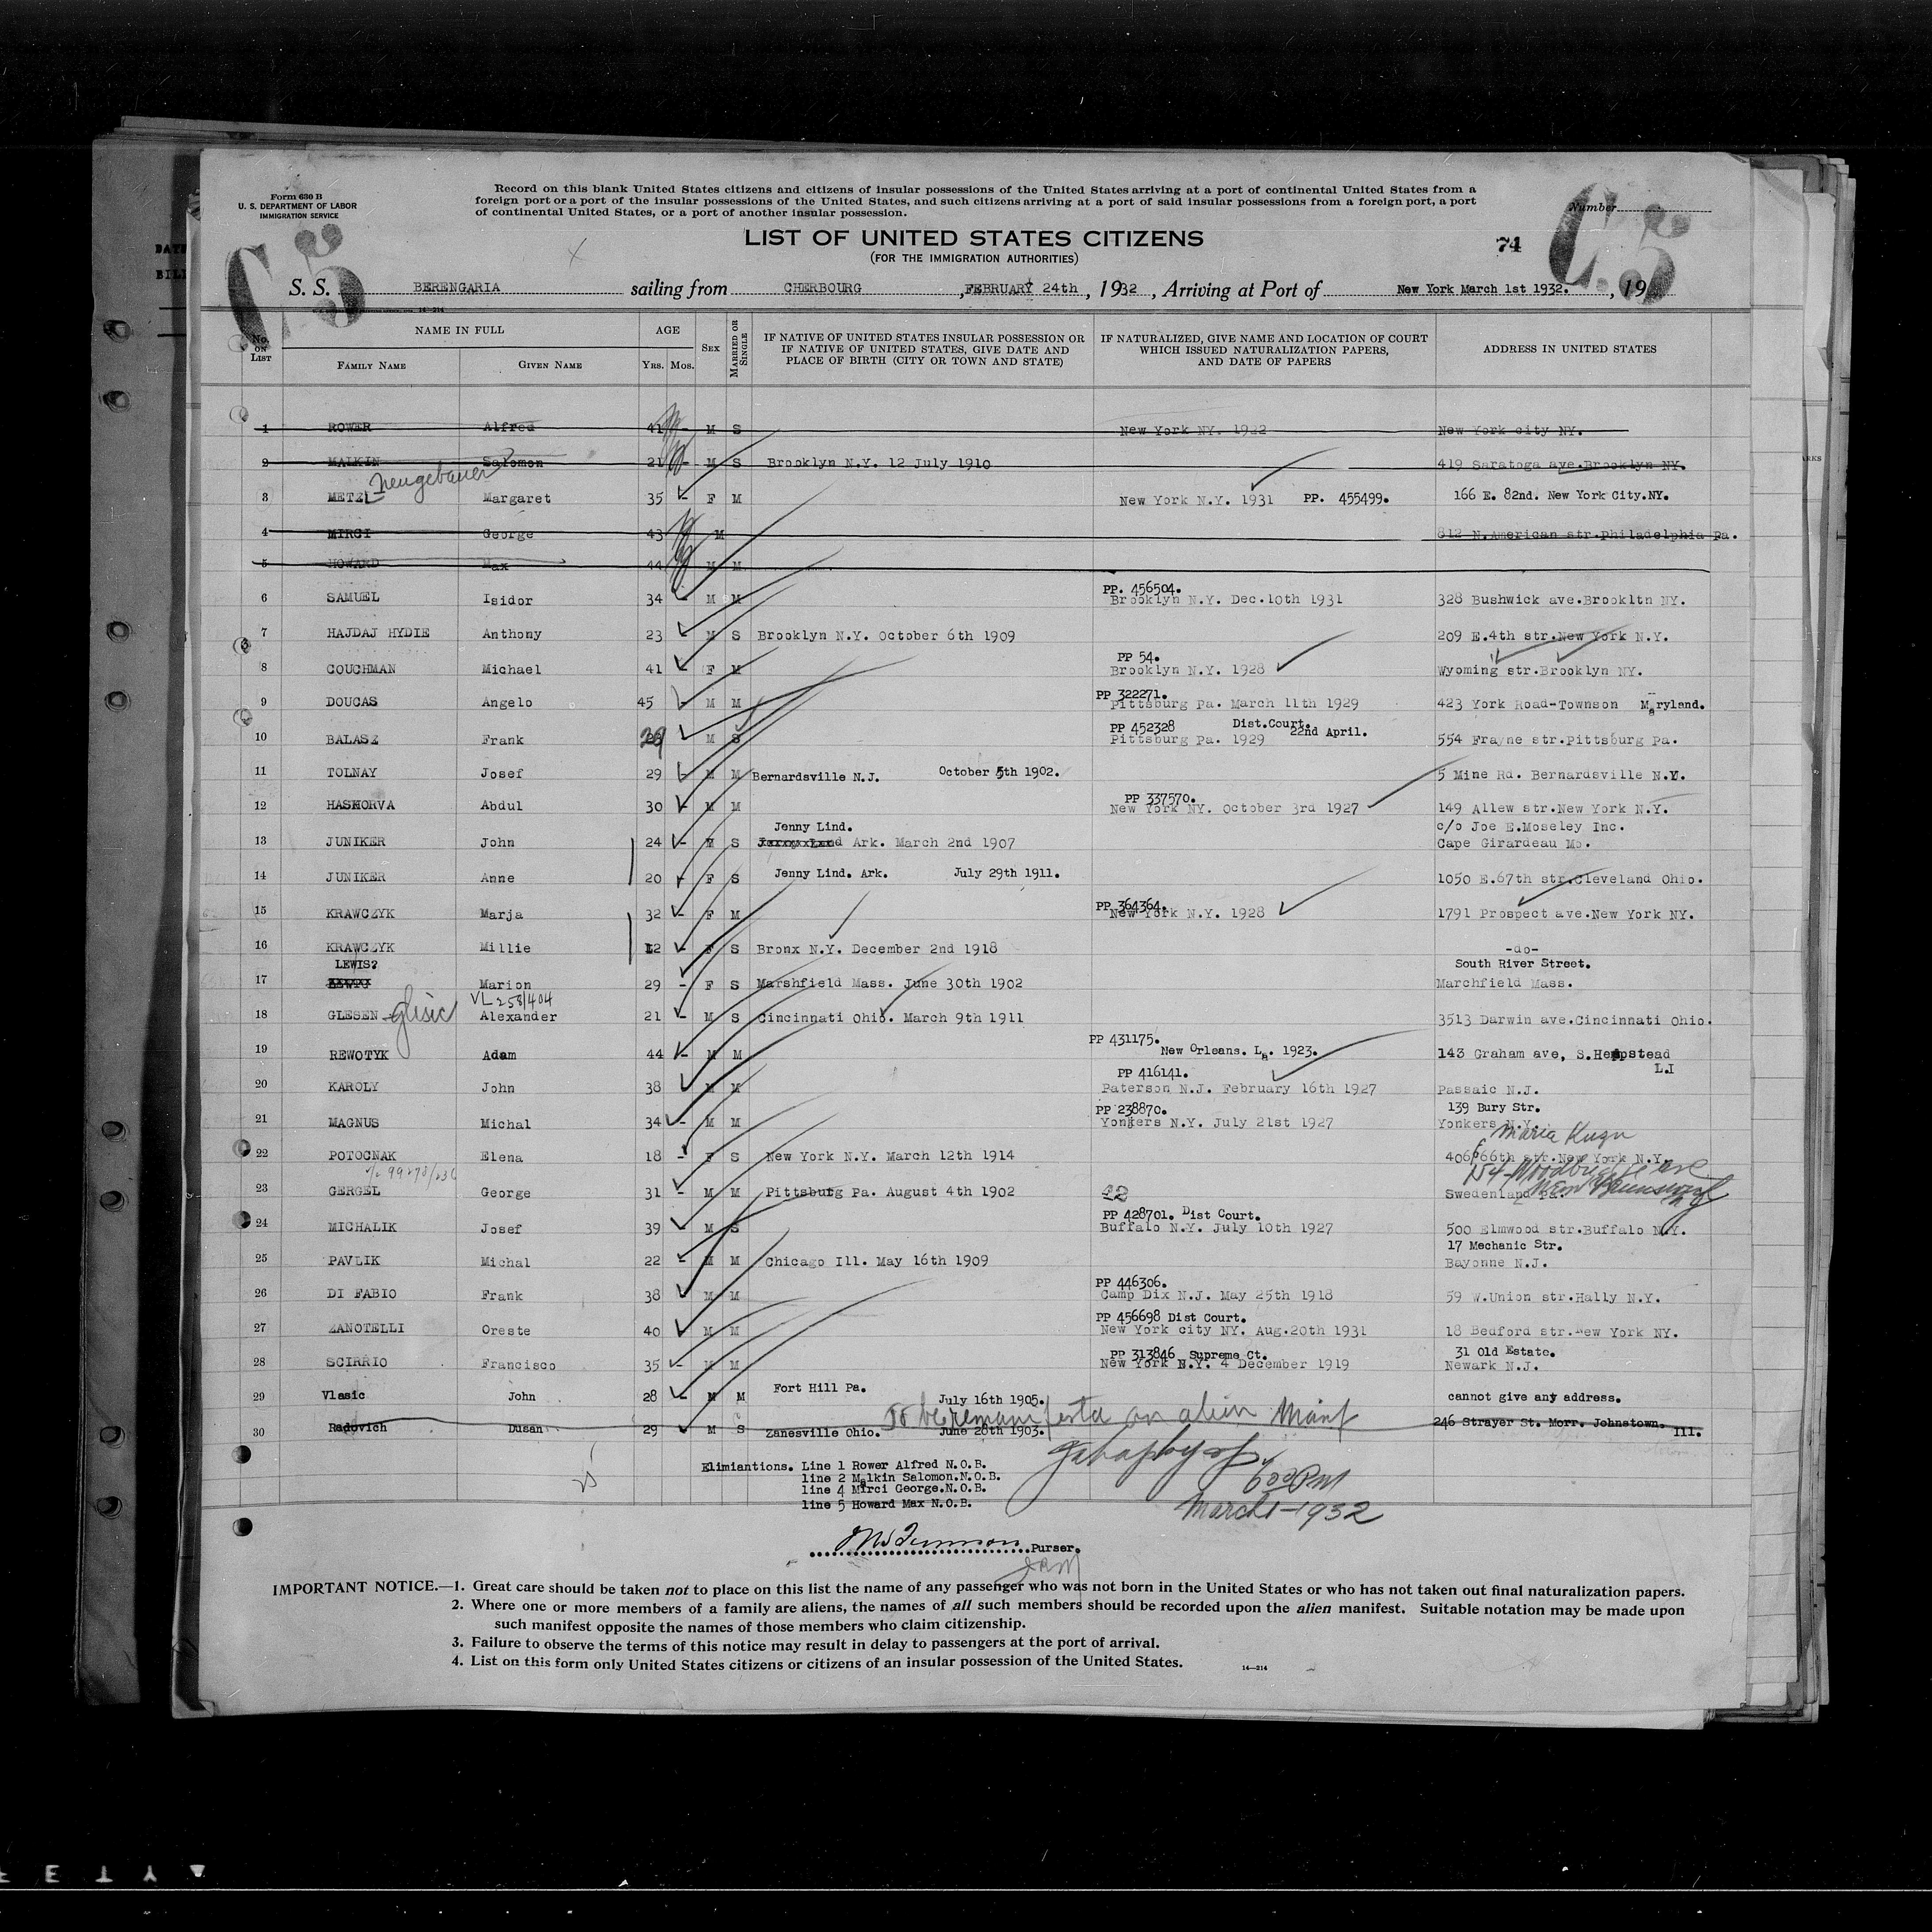 Form 630 B
U. S. DEPARTMENT OF LABOR
IMMIGRATION SERVICE
Record on this blank United States citizens and citizens of insular possessions of the United States arriving at a port of continental United States from a
foreign port or a port of the insular possessions of the United States, and such citizens arriving at a port of said insular possessions from a foreign port, a port
of continental United States, or a port of another insular possession.
Number
LIST OF UNITED STATES CITIZENS
(FOR THE IMMIGRATION AUTHORITIES)
74
C5
C5
S. S. BERENGARIA sailing from CHERBOURG, FEBRUARY 24th, 1932, Arriving at Port of New York March 1st 1932., 19
No. ON LIST
NAME IN FULL
FAMILY NAME
GIVEN NAME
AGE
YRS. MOS.
SEX
MARRIED OR SINGLE
IF NATIVE OF UNITED STATES INSULAR POSSESSION OR
IF NATIVE OF UNITED STATES, GIVE DATE AND
PLACE OF BIRTH (CITY OR TOWN AND STATE)
IF NATURALIZED, GIVE NAME AND LOCATION OF COURT
WHICH ISSUED NATURALIZATION PAPERS,
AND DATE OF PAPERS
ADDRESS IN UNITED STATES
1 ROWER Alfred 41 - M S New York NY. 1922 New York city NY.
2 MALKIN Salomon 21 - M S Brooklyn N.Y. 12 July 1910 419 Saratoga ave.Brooklyn NY.
Neugebauer
3 METZL Margaret 35 - F M New York N.Y. 1931 PP. 455499. 166 E. 82nd. New York City.NY.
4 MIRCI George 43 M 812 N.American str.Philadelphia Pa.
5 HOWARD Max 44 M M
PP. 456504.
6 SAMUEL Isidor 34 - M M Brooklyn N.Y. Dec.10th 1931 328 Bushwick ave.Brookltn NY.
7 HAJDAJ HYDIE Anthony 23 M S Brooklyn N.Y. October 6th 1909 209 E.4th str.New York N.Y.
PP 54.
8 COUCHMAN Michael 41 - F M Brooklyn N.Y. 1928 Wyoming str.Brooklyn NY.
PP 322271.
9 DOUCAS Angelo 45 - M M Pittsburg Pa. March 11th 1929 423 York Road-Townson Maryland.
PP 452328 Dist.Court. 22nd April.
10 BALASZ Frank 29 M S Pittsburg Pa. 1929 554 Frayne str.Pittsburg Pa.
11 TOLNAY Josef 29 - M M Bernardsville N.J. October 5th 1902. 5 Mine Rd. Bernardsville N.Y.
PP 337570.
12 HASHORVA Abdul 30 - M M New York NY. October 3rd 1927 149 Allew str.New York N.Y.
Jenny Lind. c/o Joe E.Moseley Inc.
13 JUNIKER John 24 - M S Ark. March 2nd 1907 Cape Girardeau Mo.
14 JUNIKER Anne 20 - F S Jenny Lind. Ark. July 29th 1911. 1050 E.67th str.Cleveland Ohio.
PP 364364.
15 KRAWCZYK Marja 32 - F M New York N.Y. 1928 1791 Prospect ave.New York NY.
16 KRAWCZYK Millie 12 - F S Bronx N.Y. December 2nd 1918 -do-
LEWIS? South River Street.
17 Marion 29 - F S Marshfield Mass. June 30th 1902 Marchfield Mass.
VL 258/404
18 GLESEN Glisic Alexander 21 - M S Cincinnati Ohio. March 9th 1911 3513 Darwin ave.Cincinnati Ohio.
PP 431175.
19 REWOTYK Adam 44 - M M New Orleans. La. 1923. 143 Graham ave, S.Hempstead
L.I
PP 416141.
20 KAROLY John 38 M M Paterson N.J. February 16th 1927 Passaic N.J.
PP 238870. 139 Bury Str.
21 MAGNUS Michal 34 - M M Yonkers N.Y. July 21st 1927 Yonkers N.Y.
Maria Kuzn
22 POTOCNAK Elena 18 - F S New York N.Y. March 12th 1914 406 66th str.New York N.Y.
154 Woodbridge ave
New Brunswick NJ
23 GERGEL George 31 - M M Pittsburg Pa. August 4th 1902 Swedenland Pa.
PP 428701. Dist Court.
24 MICHALIK Josef 39 - M S Buffalo N.Y. July 10th 1927 500 Elmwood str.Buffalo N.Y.
17 Mechanic Str.
25 PAVLIK Michal 22 - M M Chicago Ill. May 16th 1909 Bayonne N.J.
PP 446306.
26 DI FABIO Frank 38 M M Camp Dix N.J. May 25th 1918 59 W.Union str.Hally N.Y.
PP 456698 Dist Court.
27 ZANOTELLI Oreste 40 M M New York city NY. Aug.20th 1931 18 Bedford str.New York NY.
PP 313846 Supreme Ct. 31 Old Estate.
28 SCIRRIO Francisco 35 - M M New York N.Y. 4 December 1919 Newark N.J.
29 Vlasic John 28 - M M Fort Hill Pa. July 16th 1905. cannot give any address.
To be remanifested on alien Manf
30 Radovich Dusan 29 M S Zanesville Ohio. June 28th 1903. 246 Strayer St. Morr. Johnstown. Ill.
Elimiantions. Line 1 Rower Alfred N.O.B.
line 2 Malkin Salomon.N.O.B.
line 4 Mirci George.N.O.B.
line 5 Howard Max N.O.B.
600 PM
March 1-1932
Purser.
IMPORTANT NOTICE.—1. Great care should be taken not to place on this list the name of any passenger who was not born in the United States or who has not taken out final naturalization papers.
2. Where one or more members of a family are aliens, the names of all such members should be recorded upon the alien manifest. Suitable notation may be made upon
such manifest opposite the names of those members who claim citizenship.
3. Failure to observe the terms of this notice may result in delay to passengers at the port of arrival.
4. List on this form only United States citizens or citizens of an insular possession of the United States.
14—214